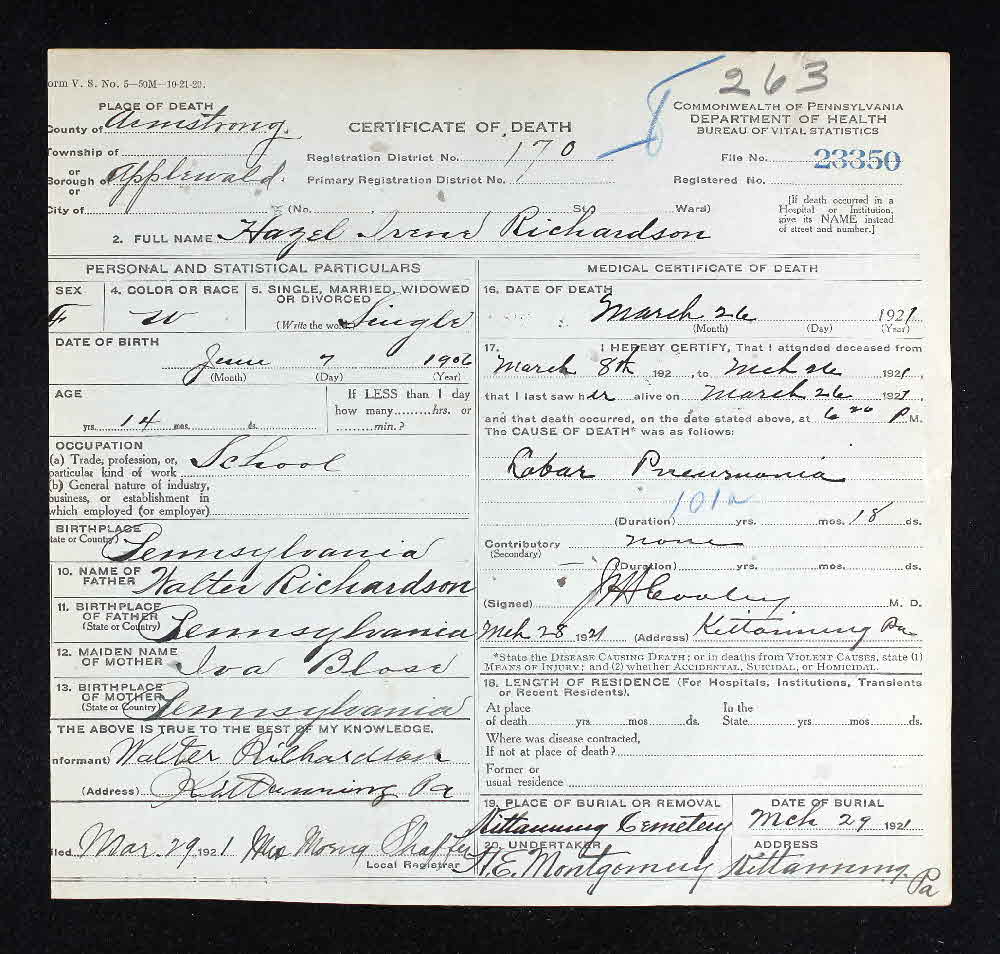 263
orm V. S. No. 5—50M—10-21-20.
PLACE OF DEATH
County of Armstrong.
Township of
or
Borough of Applewald.
or
City of
CERTIFICATE OF DEATH
Registration District No. 170
Primary Registration District No.
(No. St. Ward)
COMMONWEALTH OF PENNSYLVANIA
DEPARTMENT OF HEALTH
BUREAU OF VITAL STATISTICS
File No. 23350
Registered No.
[If death occurred in a
Hospital or Institution,
give its NAME instead
of street and number.]
2. FULL NAME Hazel Irene Richardson
PERSONAL AND STATISTICAL PARTICULARS
SEX
F
4. COLOR OR RACE
W
5. SINGLE, MARRIED, WIDOWED
OR DIVORCED
(Write the word) Single
DATE OF BIRTH
June 7 1906
(Month) (Day) (Year)
AGE
yrs. 14 mos. ds.
If LESS than 1 day
how many hrs. or
min.?
OCCUPATION
(a) Trade, profession, or,
particular kind of work School
(b) General nature of industry,
business, or establishment in
which employed (or employer)
BIRTHPLACE
tate or Country) Pennsylvania
10. NAME OF
FATHER Walter Richardson
11. BIRTHPLACE
OF FATHER
(State or Country) Pennsylvania
12. MAIDEN NAME
OF MOTHER Iva Blose
13. BIRTHPLACE
OF MOTHER
(State or Country) Pennsylvania
. THE ABOVE IS TRUE TO THE BEST OF MY KNOWLEDGE,
nformant) Walter Richardson
(Address) Kittanning Pa
iled Mar. 29 1921 Shaffer
Local Registrar
MEDICAL CERTIFICATE OF DEATH
16. DATE OF DEATH
March 26 1921
(Month) (Day) (Year)
17. I HEREBY CERTIFY, That I attended deceased from
March 8th 192 , to Mch 26 1921,
that I last saw her alive on March 26 1921,
and that death occurred, on the date stated above, at 6 20 P M.
The CAUSE OF DEATH* was as follows:
Lobar Pneumonia
101a
(Duration) yrs. mos. 18 ds.
Contributory none
(Secondary)
(Duration) yrs. mos. ds.
(Signed) Cooley M. D.
Mch 28 1921 (Address) Kittanning Pa
*State the DISEASE CAUSING DEATH; or in deaths from VIOLENT CAUSES, state (1)
MEANS OF INJURY; and (2) whether ACCIDENTAL, SUICIDAL, or HOMICIDAL.
18. LENGTH OF RESIDENCE (For Hospitals, Institutions, Transients
or Recent Residents).
At place In the
of death yrs mos ds. State yrs mos ds.
Where was disease contracted,
If not at place of death?
Former or
usual residence
19. PLACE OF BURIAL OR REMOVAL
Kittanning Cemetery
DATE OF BURIAL
Mch 29 1921
20. UNDERTAKER
H.E. Montgomery
ADDRESS
Kittanning, Pa